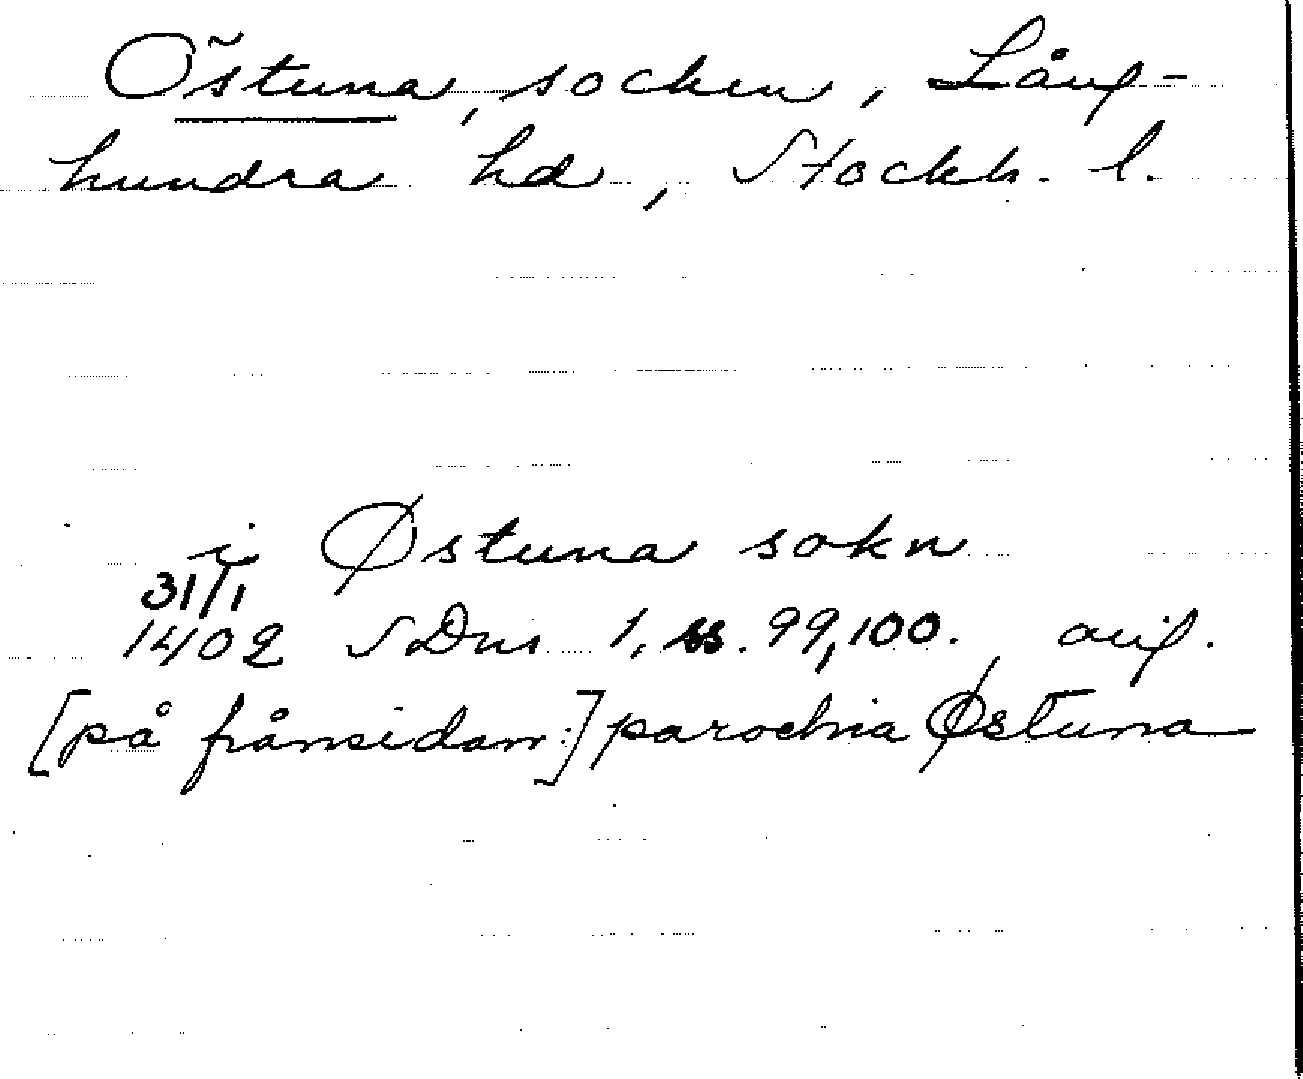 Östuna, socken, Lång-
hundra hd, Stockh. l.
i Østuna sokn
31/1
1402 SDns 1, ss. 99,100. orig.
[på frånsidan:] parochia Østuna